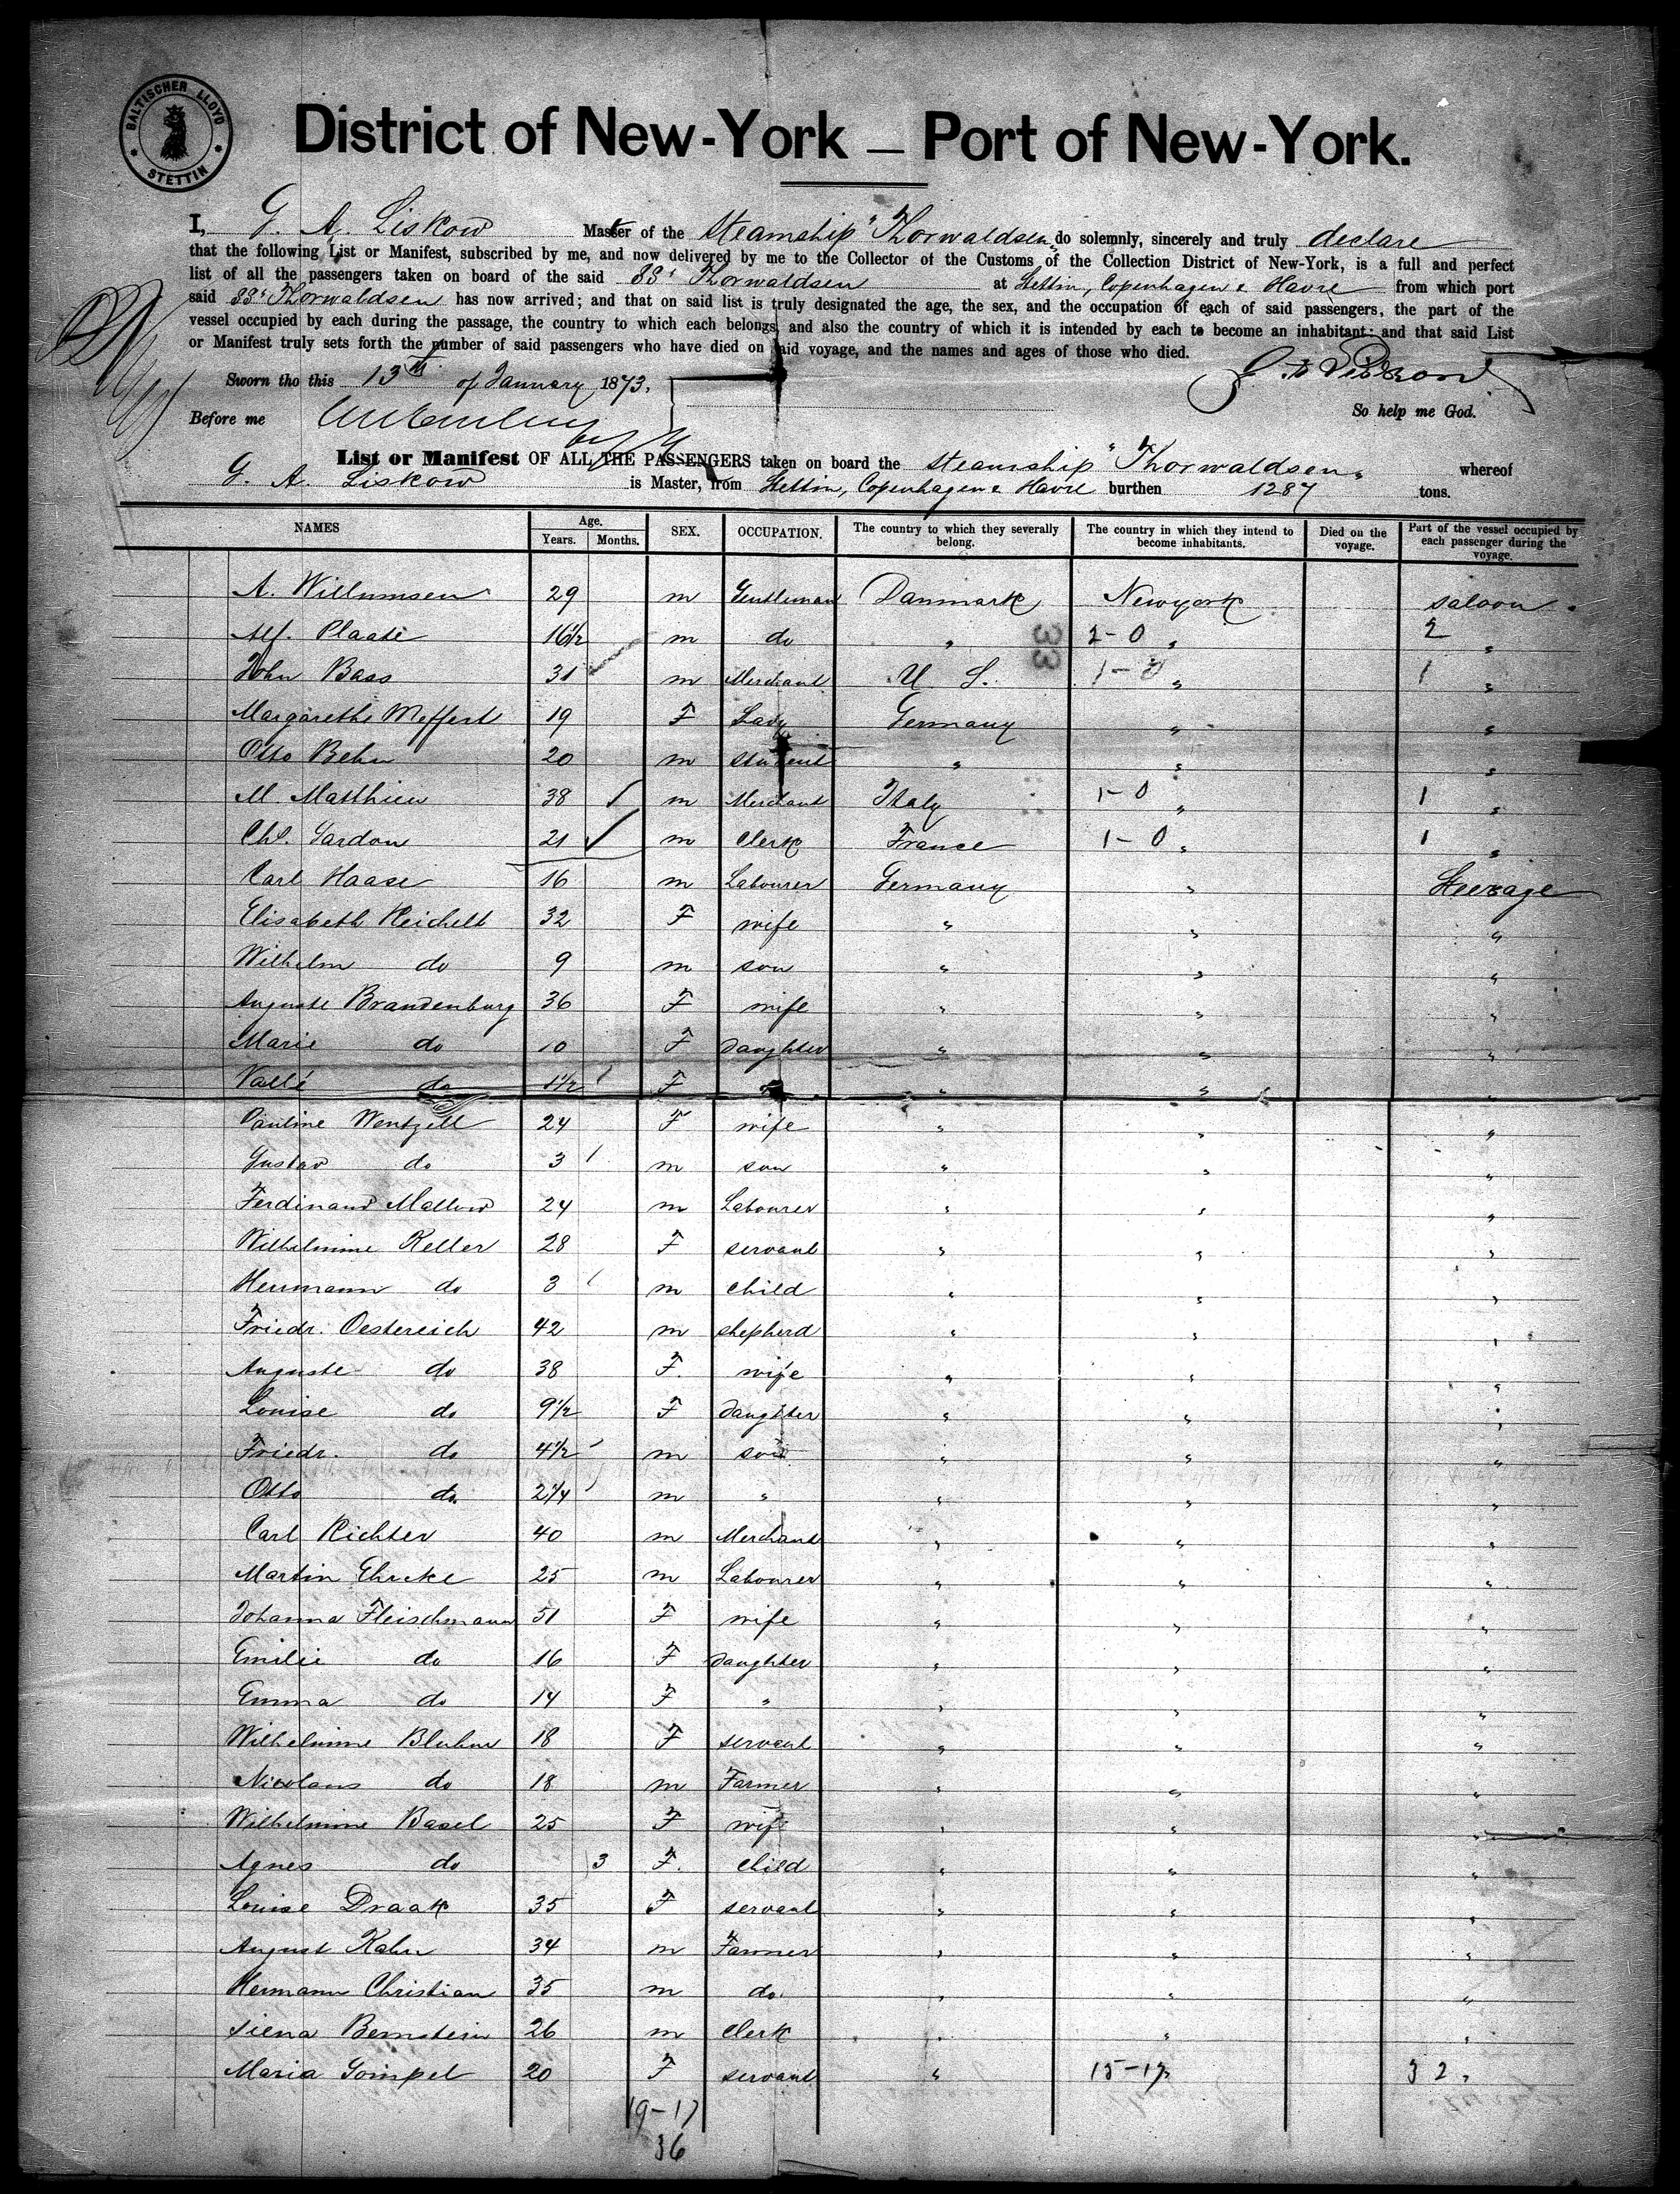 BALTISCHER LLOYD
STETTIN
District of New-York — Port of New-York.
I, G. A. Liskow Master of the Steamship "Thorwaldsen" do solemnly, sincerely and truly declare
that the following List or Manifest, subscribed by me, and now delivered by me to the Collector of the Customs of the Collection District of New-York, is a full and perfect
list of all the passengers taken on board of the said SS' Thorwaldsen at Stettin, Copenhagen & Havre from which port
said SS' Thorwaldsen has now arrived; and that on said list is truly designated the age, the sex, and the occupation of each of said passengers, the part of the
vessel occupied by each during the passage, the country to which each belongs, and also the country of which it is intended by each to become an inhabitant; and that said List
or Manifest truly sets forth the number of said passengers who have died on said voyage, and the names and ages of those who died.
Sworn tho this 13th of January 1873.
Before me
So help me God.
List or Manifest OF ALL THE PASSENGERS taken on board the steamship "Thorwaldsen" whereof
G. A. Liskow is Master, from Stettin, Copenhagen & Havre burthen 1287 tons.
NAMES Age. Years. Months. SEX. OCCUPATION. The country to which they severally belong. The country in which they intend to become inhabitants. Died on the voyage. Part of the vessel occupied by each passenger during the voyage.
A. Willumsen 29 m Gentleman Danmark Newyork saloon
Alf. Plaate 16½ m do " 2-0 " 2 "
33
John Bass 31 m Merchant U S. 1-0 " 1 "
Margarethe Meffert 19 F Lady Germany " "
Otto Behn 20 m student " " "
M. Matthieu 38 m Merchant Italy 1-0 " 1 "
Chl. Gardon 21 m Clerk France 1-0 " 1 "
Carl Haase 16 m Labourer Germany " Steerage
Elisabeth Reichelt 32 F wife " " "
Wilhelm do 9 m son " " "
Auguste Brandenburg 36 F wife " " "
Marie do 10 F daughter " " "
do 1½ F " " " "
Pauline Wentzell 24 F wife " " "
Gustav do 3 m son " " "
Ferdinand Mallow 24 m Labourer " " "
Wilhelmine Keller 28 F servant " " "
Hermann do 3 m child " " "
Friedr. Oestereich 42 m shepherd " " "
Auguste do 38 F. wife " " "
Louise do 9½ F daugther " " "
Friedr. do 4½ m son " " "
Otto do 2¼ m " " " "
Carl Richter 40 m Merchant " " "
Martin Ehricke 25 m Labourer " " "
Johanna Fleischmann 51 F wife " " "
Emilie do 16 F daughter " " "
Emma do 14 F " " " "
Wilhelmine Bluhm 18 F servant " " "
Nicolaus do 18 m Farmer " " "
Wilhelmine Basel 25 F wife " " "
Agnes do 3 F. child " " "
Louise Draak 35 F servant " " "
August Kahn 34 m Farmer " " "
Hermann Christian 35 m do " " "
Siena Bernstein 26 m clerk " " "
Maria Gompel 20 F servant " 15-17 " 32 "
19-17
36